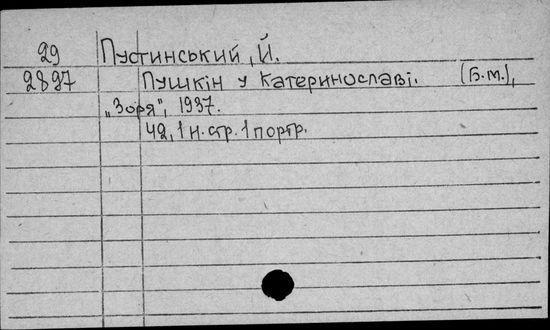 29 Пустинський, Й.
2897 Пушкін у Катеринославі. (Б.м.),
„Зоря", 1937.
42, 1 н. стр. 1 портр.